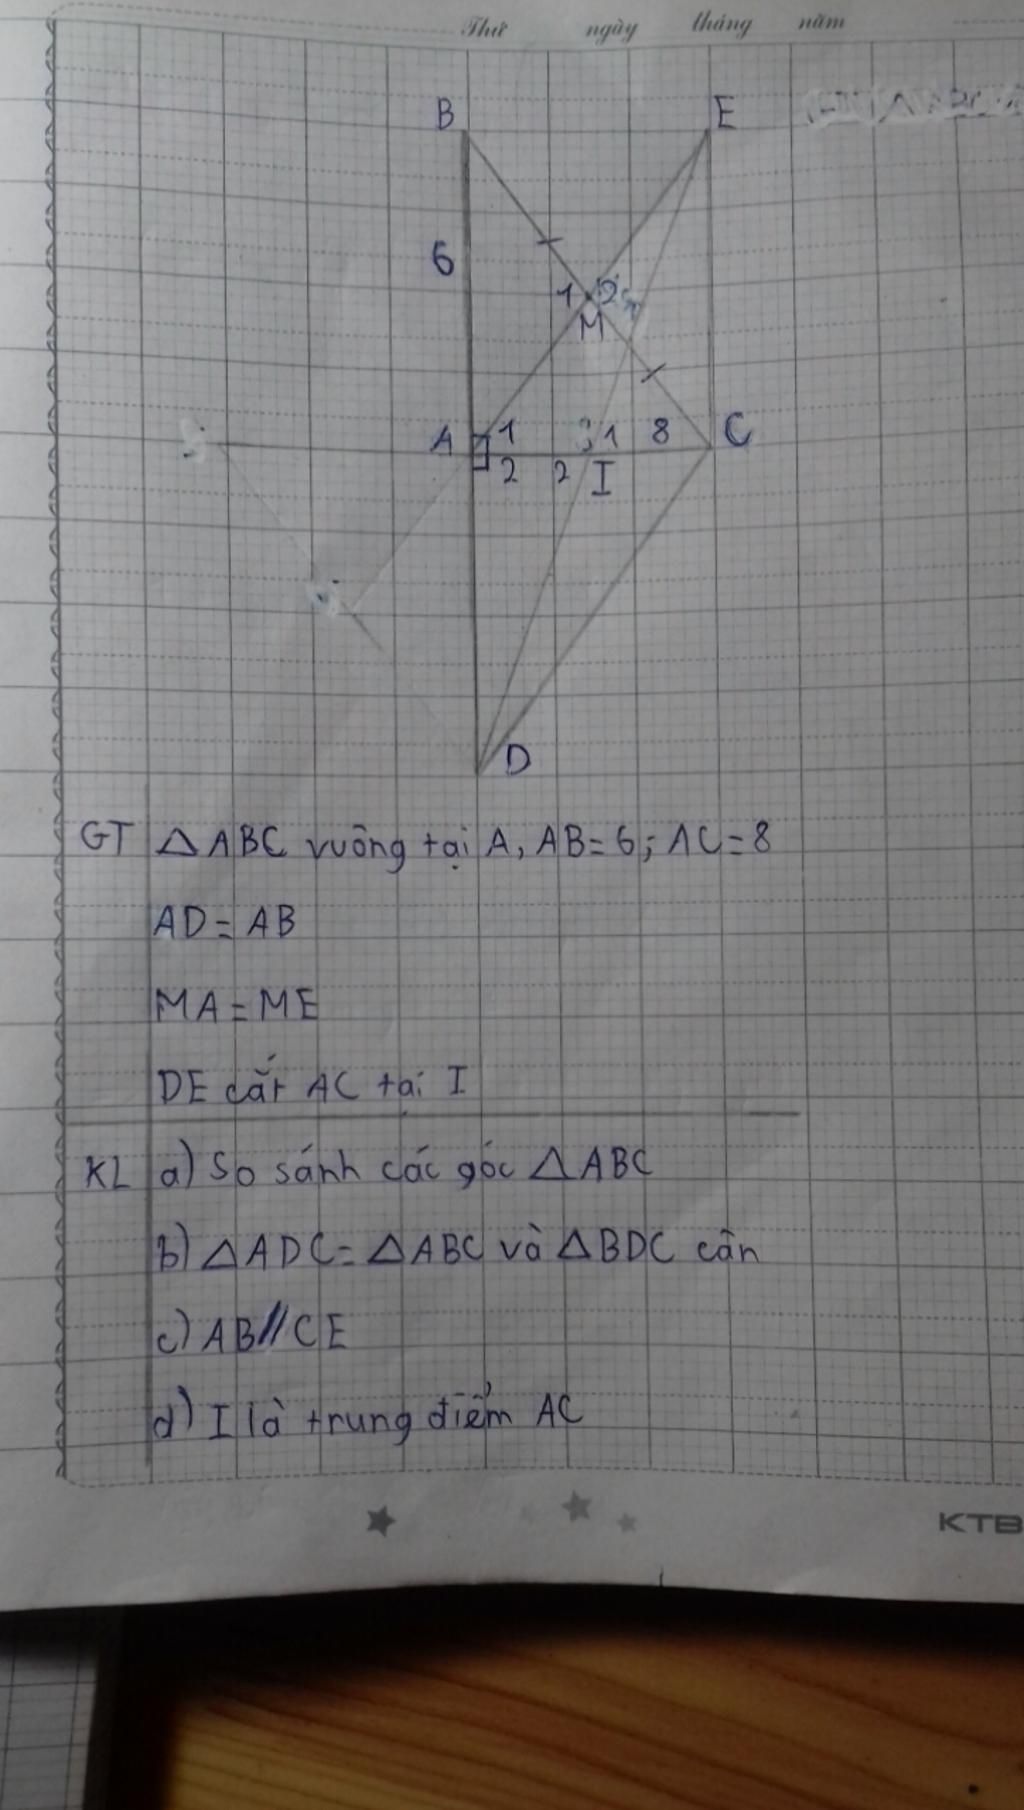 Thứ ngày tháng năm
B E
6
1 2
M
A 1 1 8 C
2 2 I
D
GT △ABC vuông tại A, AB=6; AC=8
AD=AB
MA=ME
DE cắt AC tại I
KL a) So sánh các góc △ABC
b) △ADC=△ABC và △BDC cân
c) AB//CE
d) I là trung điểm AC
KTB